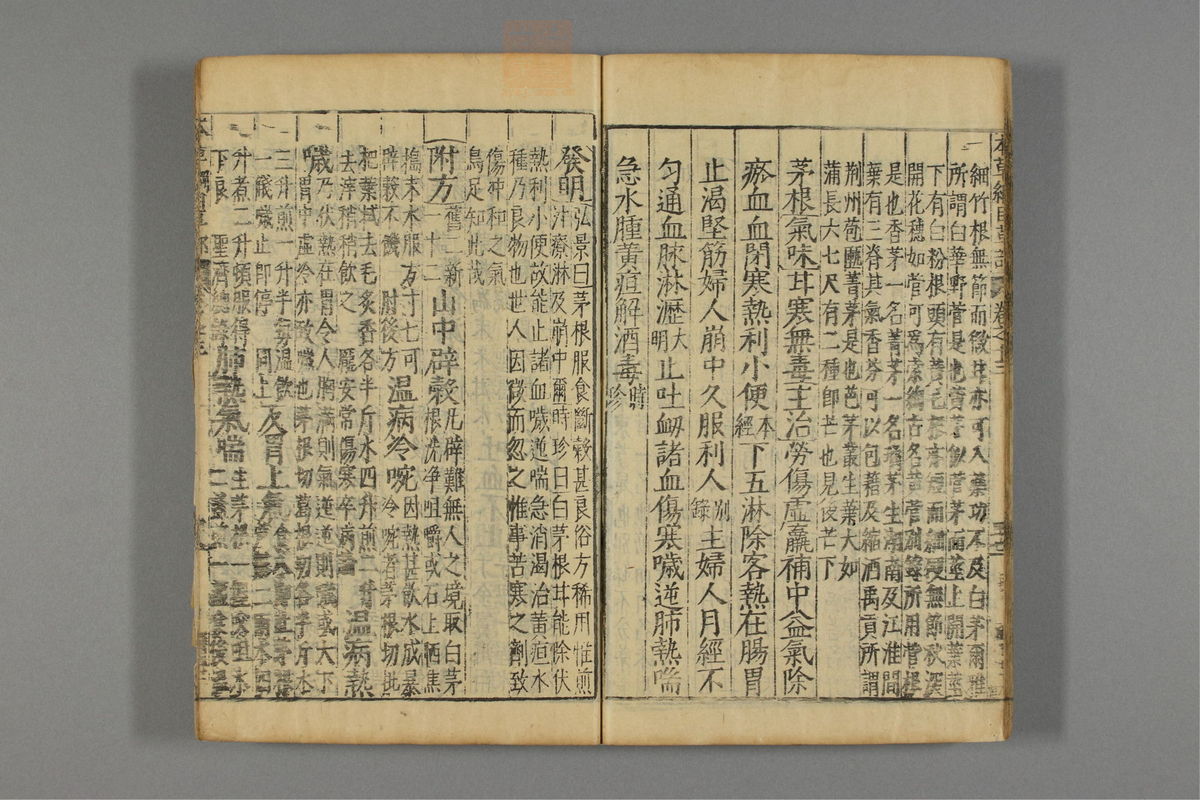 細竹根無節而微甘亦可入藥功不及白茅爾雅
所謂白華野菅是也菅茅似菅茅而莖上開葉莖
下有白粉根頭有黃毛根亦短而細硬無節秋深
開花穗如菅可爲索綯古名菅
是也香茅一名菁茅一名瓊茅生湖南及江淮間
葉有三脊其氣香芬可以包藉及縮酒禹貢所謂
荆州苞匭菁茅是也芭茅叢生葉大如
蒲長六七尺有二種即芒也見後芒下
茅根氣味甘寒無毒主治勞傷虛羸補中益氣除
瘀血血閉寒熱利小便本經下五淋除客熱在腸胃
止渴堅筋婦人崩中久服利人別錄主婦人月經不
勻通血脉淋瀝大明止吐衂諸血傷寒噦逆肺熱喘
急水腫黃疸解酒毒時珍
發明弘景曰茅根服食斷穀甚良俗方稀用惟煎
汁療淋及崩中爾時珍曰白茅根甘能除伏
熱利小便故能止諸血噦逆喘急消渴治黃疸水
種乃良物也世人因微而忽之惟事苦寒之劑致
傷沖和之氣
烏足知此哉
附方舊二新十二山中辟穀凡辟難無人之境取白茅
根洗淨咀嚼或石上晒焦
搗末水服方寸七可
辟穀不饑 肘後方溫病冷啘因熱甚飲水成暴
冷啘者茅根切枇
杷葉拭去毛炙香各半斤水四升煎二升
去滓稍稍飲之 龐安常傷寒卒病論溫病熱
噦乃伏熱在胃令人胸滿則氣逆逆則噦或大下
胃中虛冷亦致噦也茅根切葛根切各半斤水
三升煎一升半每溫飲
一盞噦止即停 同上反胃上氣食入即吐茅根
二兩水四
升煮二升頓服得
下良 聖濟總錄肺熱氣喘生茅根一握咬咀水
二盞煎一盞